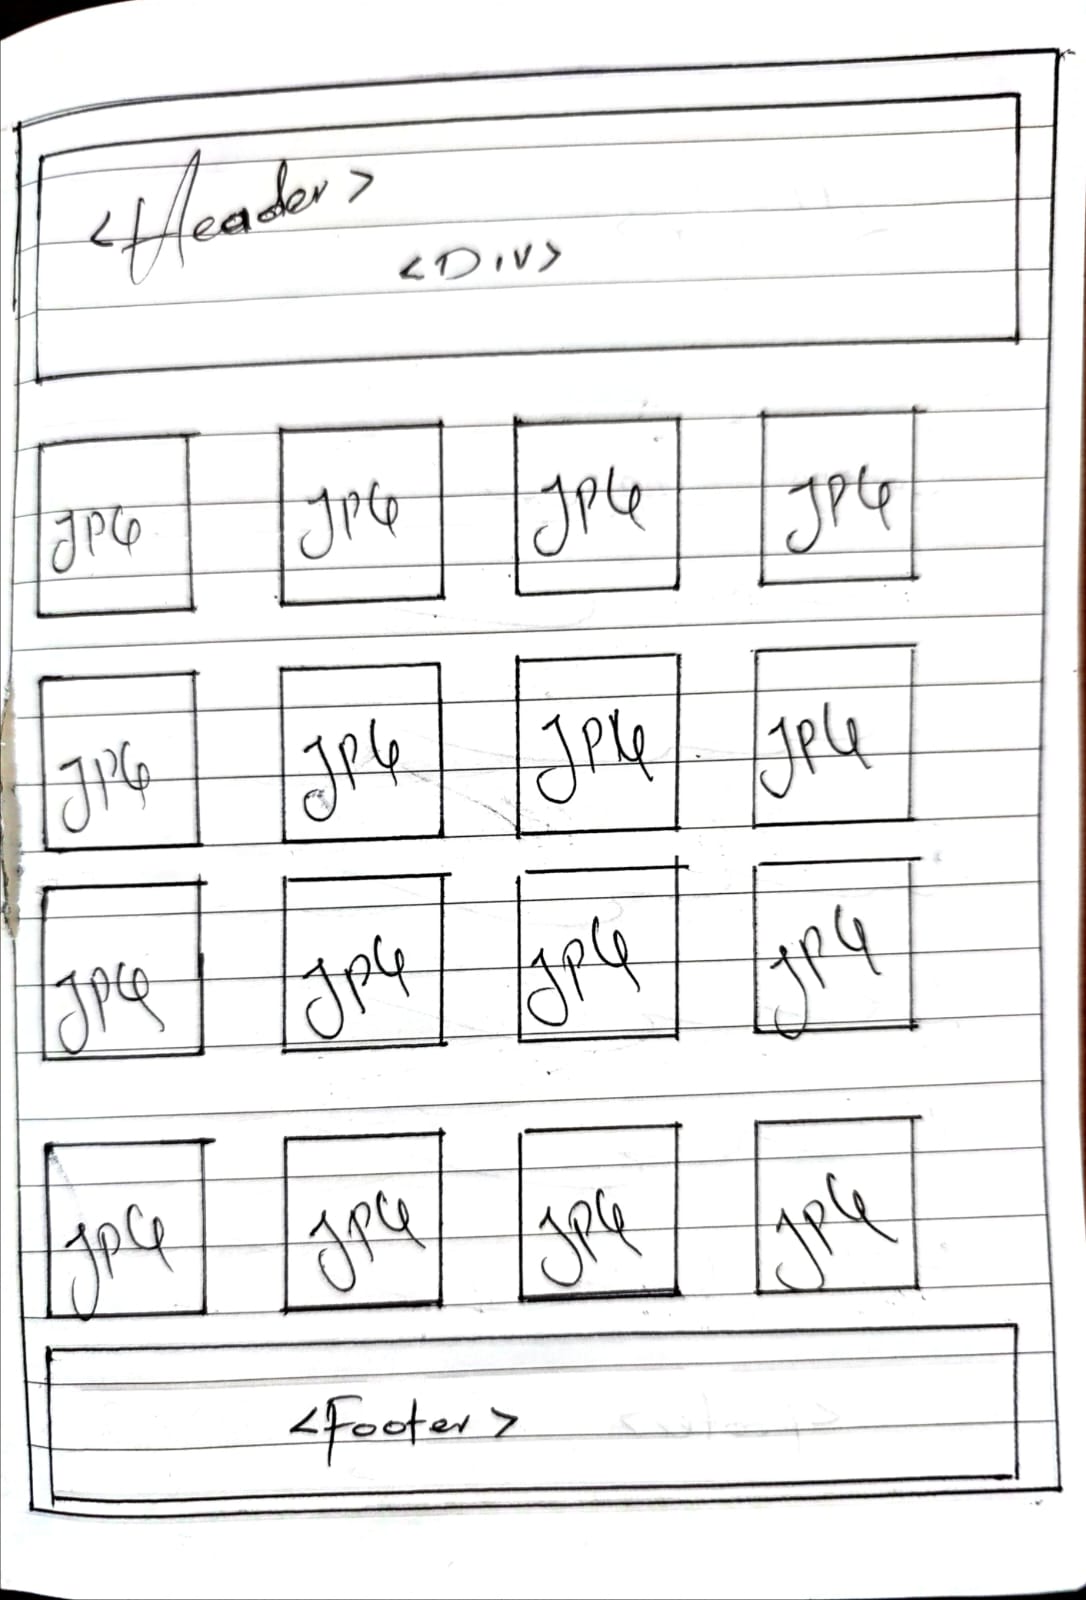 <Header>
<DIV>
JPG JPG JPG JPG
JPG JPG JPG JPG
JPG JPG JPG JPG
JPG JPG JPG JPG
<Footer>